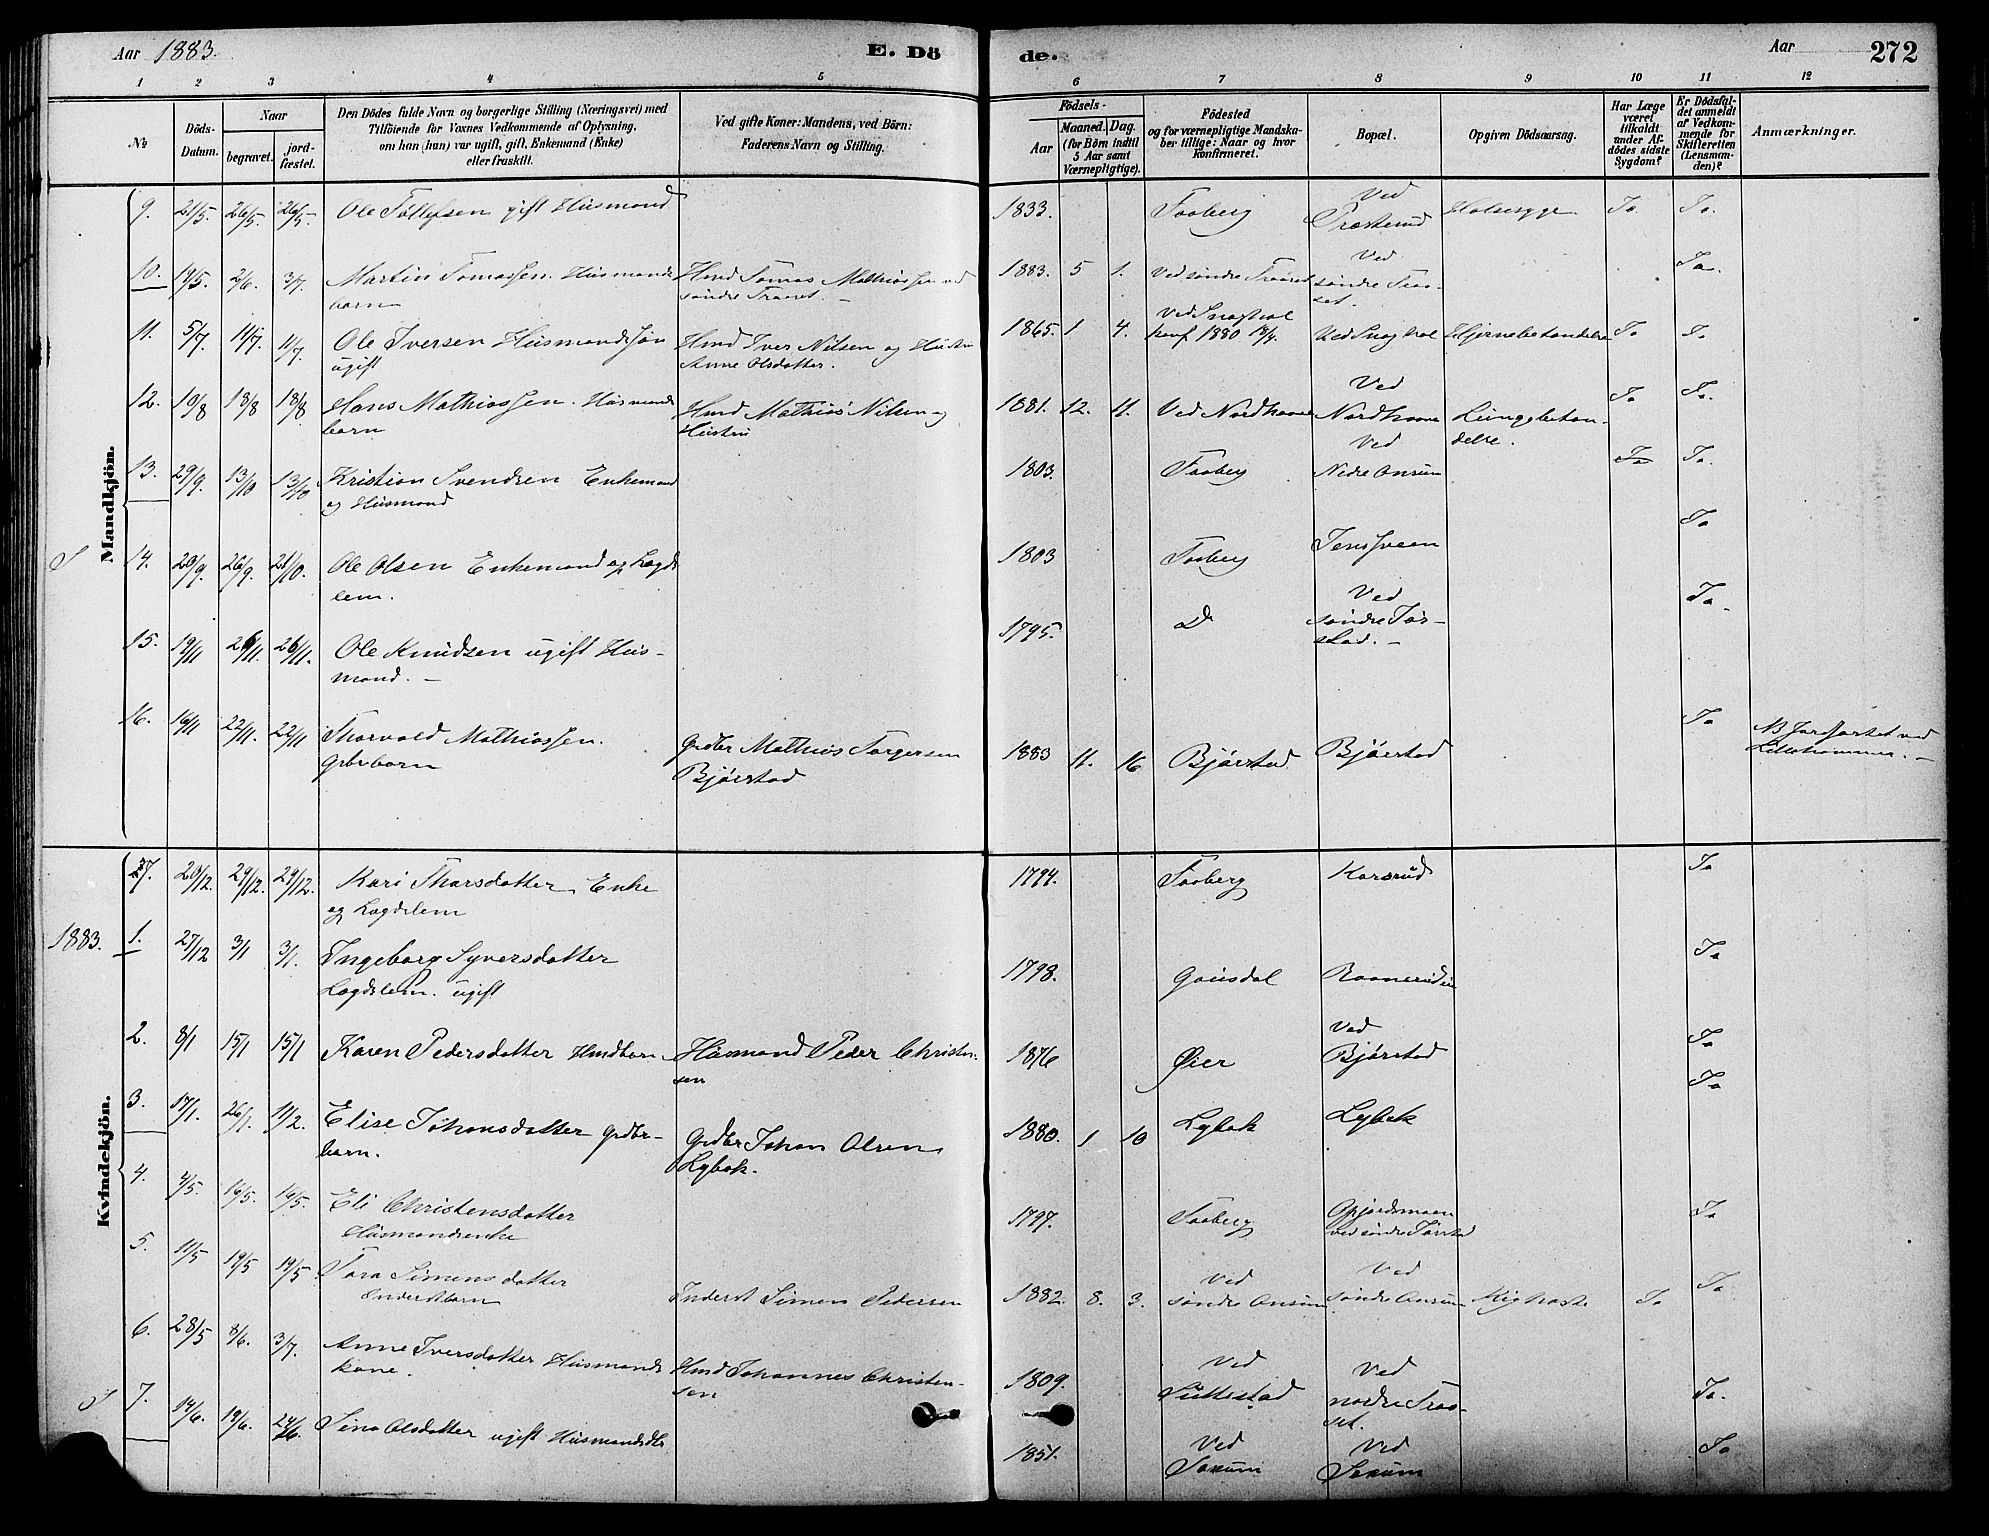 Aar 1883.
E. Dö
de.
Aar
272
1 2 3 4 5 6 7 8 9 10 11 12
№
Döds-Datum.
Naar
begravet.
jord-fæstet.
Den Dödes fulde Navn og borgerlige Stilling (Næringsvei) med
Tilföiende for Voxnes Vedkommende af Oplysning,
om han (hun) var ugift, gift, Enkemand (Enke)
eller fraskilt.
Ved gifte Koner: Mandens, ved Börn:
Faderens Navn og Stilling.
Födsels-
Aar
Maaned. Dag.
(for Börn indtil
5 Aar samt
Værnepligtige).
Födested
og for værnepligtige Mandska-
ber tillige: Naar og hvor
konfirmeret.
Bopæl.
Opgiven Dödsaarsag.
Har Læge
været
tilkaldt
under Af-
dödes sidste
Sygdom?
Er Dödsfal-
det anmeldt
af Vedkom-
mende for
Skifteretten
(Lensman-
den)?
Anmærkninger.
Mandkjön.
9. 21/5. 26/5. 26/5. Ole Tollefsen gift Husmand 1833. Faaberg Ved Præsterud Halssyge. Ja. Ja.
10. 19/5. 2/6. 3/7. Martin Tomassen Husmands
barn
Hmd Tomas Mathiassen ved
søndre Traaset.
1883. 5 1. Ved søndre Traaset Ved
søndre Traa-
set. Ja.
11. 5/7. 11/7. 11/7. Ole Iversen Husmandssøn
ugift
Hmd Iver Nilsen og Hustru
Anne Olsdatter.
1865. 1 4. konf 1880 Hjernebetændelse Ja Ja
12. 10/8 18/8 18/8 Hans Mathiassen. Husmands
barn
Hmd Mathias Nilsen og
Hustru
1881. 12. 11. Ved Nordhove Ved
Nordhove Lungebetæn-
delse. Ja Ja.
13. 29/9. 13/10 13/10 Kristian Svendsen Enkemand
og Husmand
1803. Faaberg Ved
Nedre Onsum Ja Ja.
14. 20/9. 26/9. 21/10. Ole Olsen Enkemand og Lægds
lem.
1803 Faaberg Jenssveen Ja
15. 19/11 26/11. 26/11. Ole Knudsen ugift Hus-
mand.
1795. Do Ved
søndre Jør-
stad. Ja.
16. 16/11 22/11. 22/11 Thorvald Mathiassen.
Gbrbarn
Grdbr Mathias Torgersen
Bjørstad
1883 11. 16 Bjørstad Bjørstad Ja
NB Jordfæstet ved
Lillehammer.
Kvindekjön.
27. 20/12. 29/12. 29/12. Kari Thorsdatter Enke
og Lægdslem
1794. Faaberg Korsrud Ja
1883. 1. 27/12 3/1 3/1. Ingeborg Syversdatter
Lægdslem. ugift
1798. Gausdal Ja
2. 8/1 15/1 15/1 Karen Pedersdatter Hmdbarn Husmand Peder Christen-
sen
1876 Øier Ved
Bjørstad Ja
3. 17/1. 26/1. 11/2. Elise Johansdatter Grdbr-
barn.
Grdbr Johan Olsen
Lybæk.
1880. 1 10 Lybæk Lybæk Ja
4. 16/5. 16/5. Eli Christensdatter
Husmandsenke
1797. Faaberg
ved søndre Jørstad Ja
5. 11/5 19/5 19/5 Tora Simensdatter
Inderstbarn
Inderst Simen Pedersen
1882. 8. 3. Ved
søndre Onsum Ved
søndre Onsum Kighoste Ja Ja
6. 28/5 8/6. 3/7. Anne Iversdatter Husmands
kone.
Hmd Johannes Christen-
sen
1809. Ved
Suttestad Ved
nordre Traa-
set. Ja.
7. 14/6. 19/6. 24/6 Sina Olsdatter ugift Husmandsdtr 1851. Ved
Saxum Ved
Saxum Ja